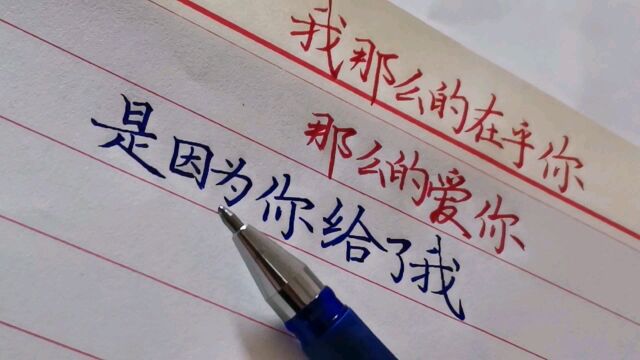 我那么的在乎你
那么的爱你
是因为你给了我